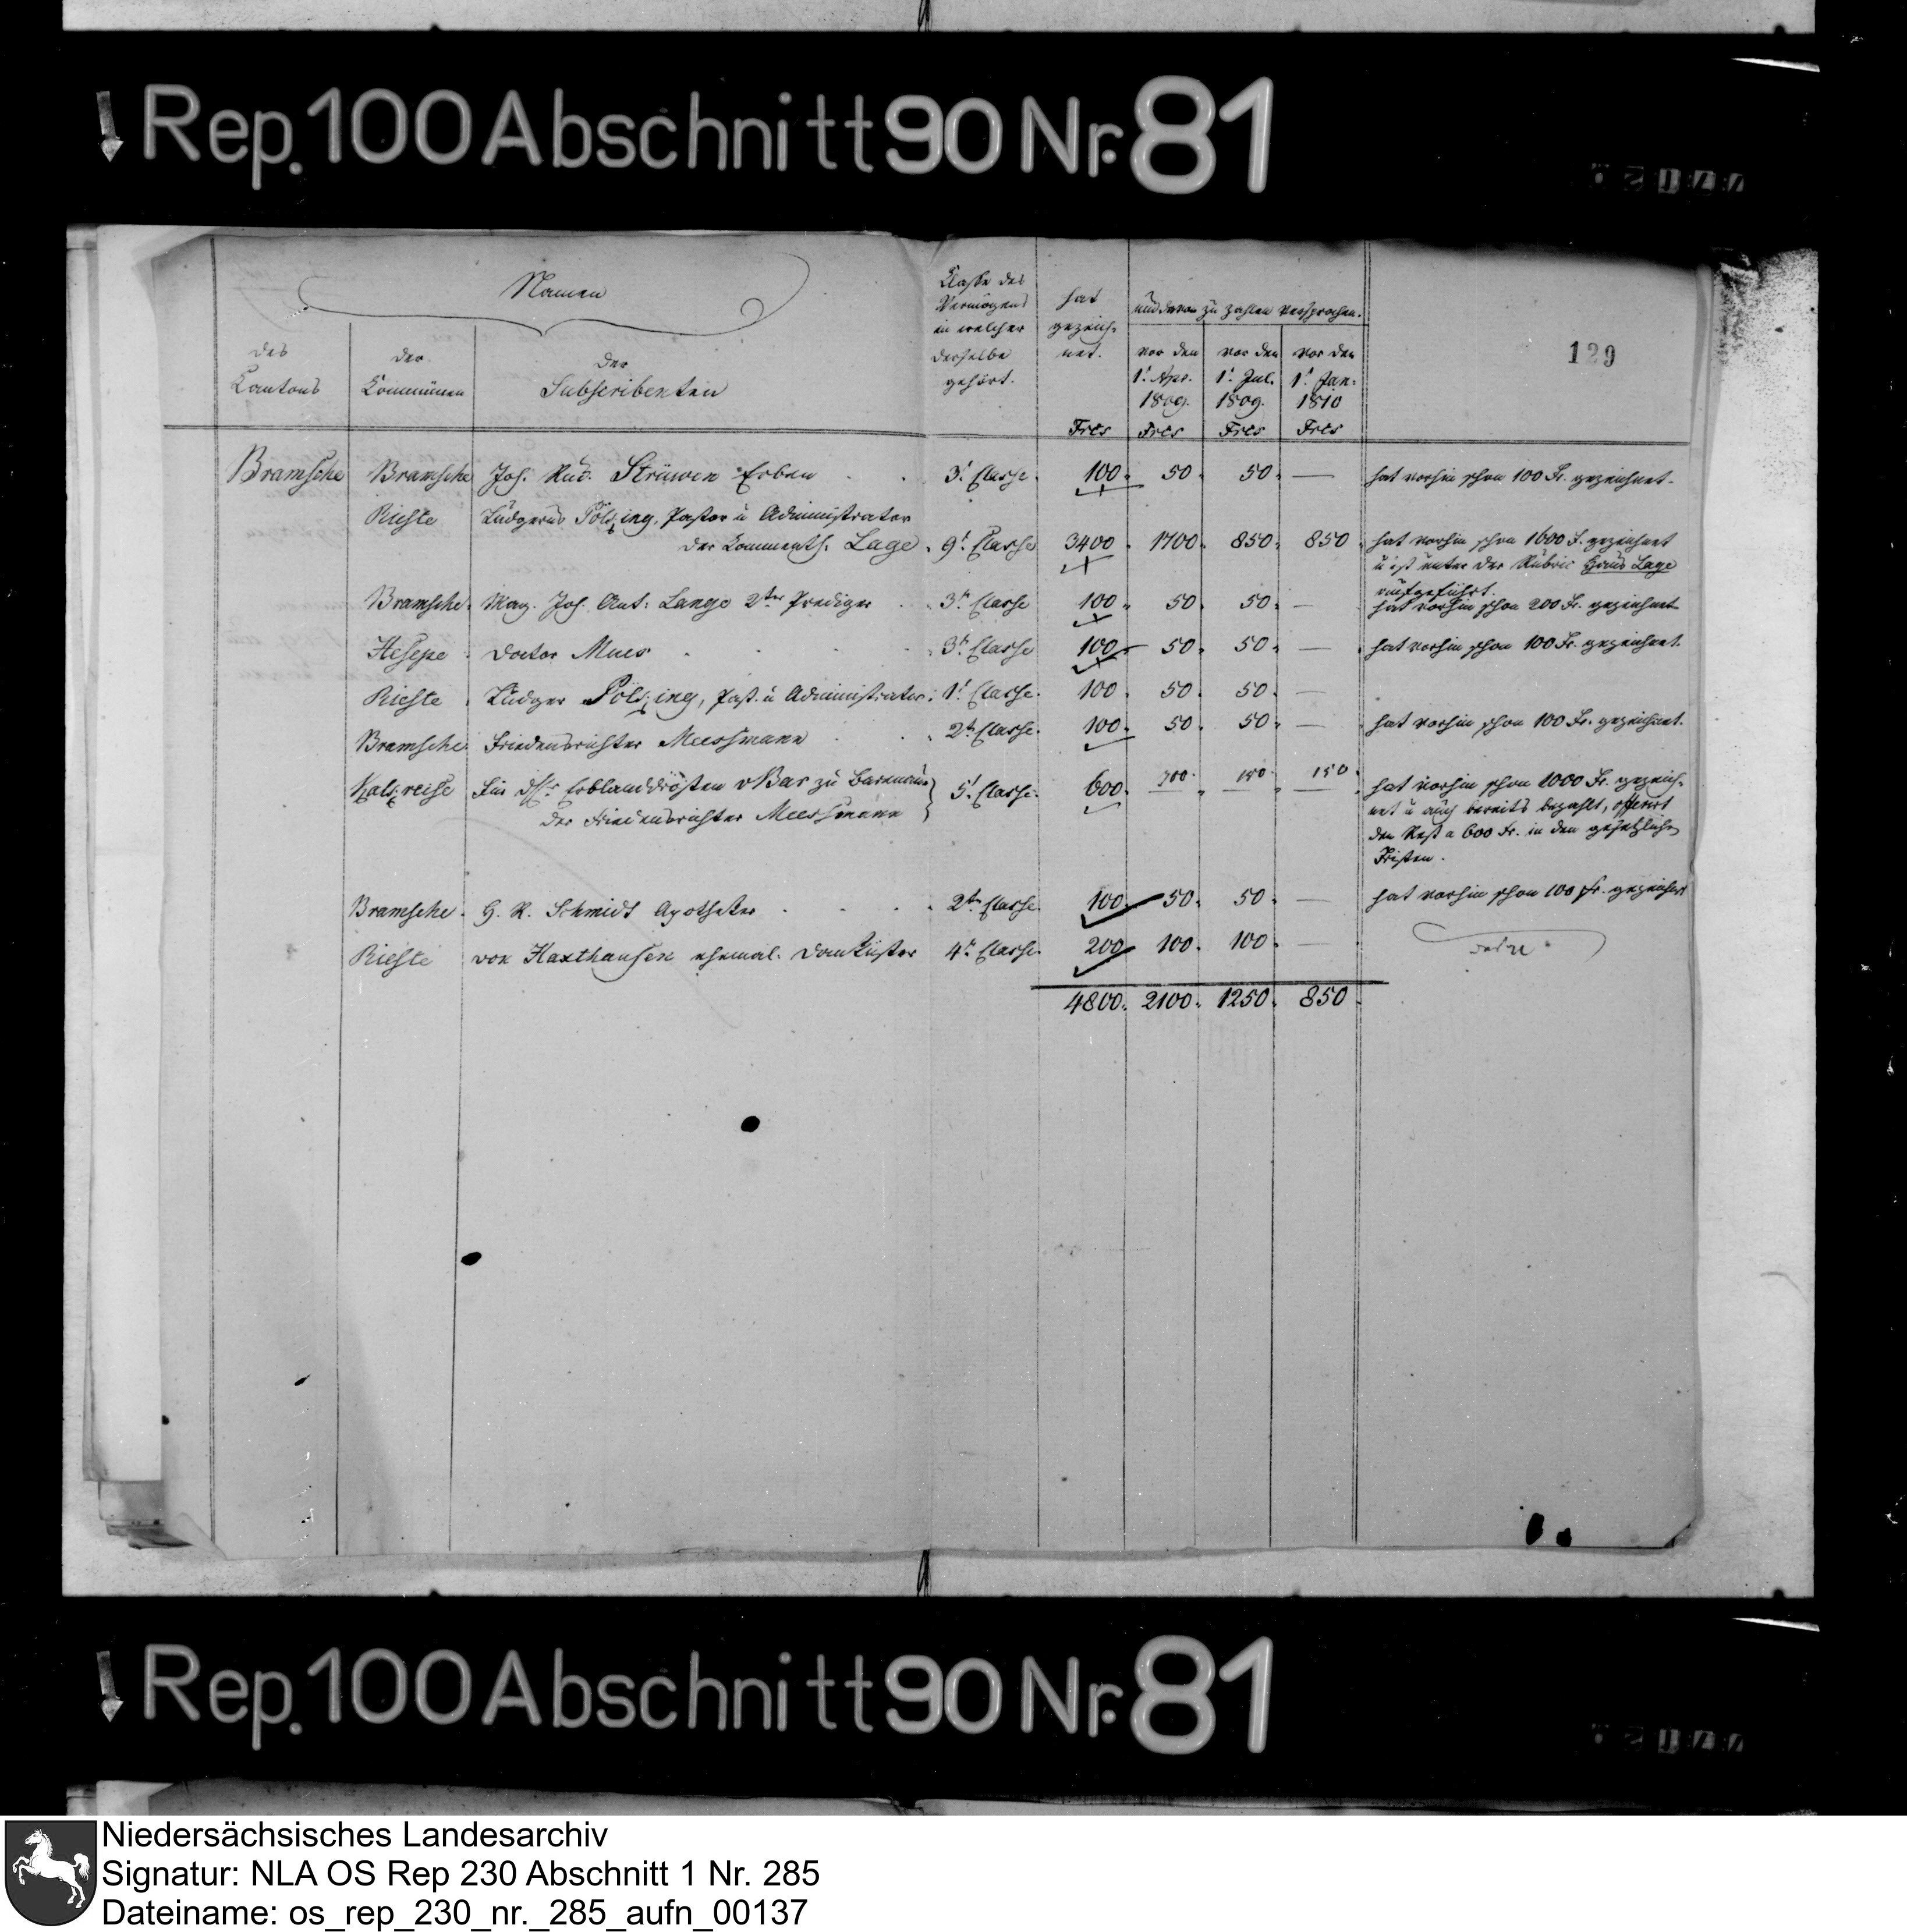 Rep. 100 Abschnitt 90 Nr. 81
Namen
des Cantons
der Communen
der Subscribenten
Classe des Vermögens in welcher derselbe gehört.
hat gezeichnet.
und davon zu zahlen versprochen.
vor den 1t. Apr. 1809.
vor den 1t. Jul. 1809.
vor den 1t. Jan. 1810
129
Frcs Frcs Frcs Frcs
Bramsche Bramsche Joh. Rud. Strüwen Erben 3t. Classe. 100. 50. 50. — hat vorhin schon 100 Fr. gezeichnet.
Rieste Ludgerus Pölking, Pastor u Administrator
der Commenth. Lage. 9t. Classe 3400. 1700. 850. 850. hat vorhin schon 1600 F. gezeichnet
u ist unter der Rubric Haus Lage
aufgeführt.
Bramsche. Mag. Joh. Ant. Lange 2ter Prediger 3te Classe 100. 50. 50. — hat vorhin schon 200 Fr. gezeichnet
Hesepe Doctor Mues 3te Classe 100 50. 50. — hat vorhin schon 100 Fr. gezeichnet.
Rieste. Ludger Pölking, Past. u Administrator. 1t. Classe. 100. 50. 50. —
Bramsche Friedensrichter Meessmann 2te Classe. 100. 50. 50. — hat vorhin schon 100 Fr. gezeichnet.
Kalkreise Für Erblanddrosten v Bar zu Barenau 5t. Classe. 600. 150. 150. hat vorhin schon 1000 Fr. gezeich-
der Friedensrichter Meessmann net u auch bereits bezahlt, offerirt
den Rest a 600 Fr. in den gesetzlichen
Fristen.
Bramsche. G. R. Schmidt Apotheker 2te Classe. 100. 50. 50. — hat vorhin schon 100 Fr. gezeichnet
Rieste von Haxthausen ehemal. Domküster 4te Classe. 200 100. 100. —
4800. 2100. 1250. 850.
Rep. 100 Abschnitt 90 Nr. 81
Niedersächsisches Landesarchiv
Signatur: NLA OS Rep 230 Abschnitt 1 Nr. 285
Dateiname: os_rep_230_nr._285_aufn_00137